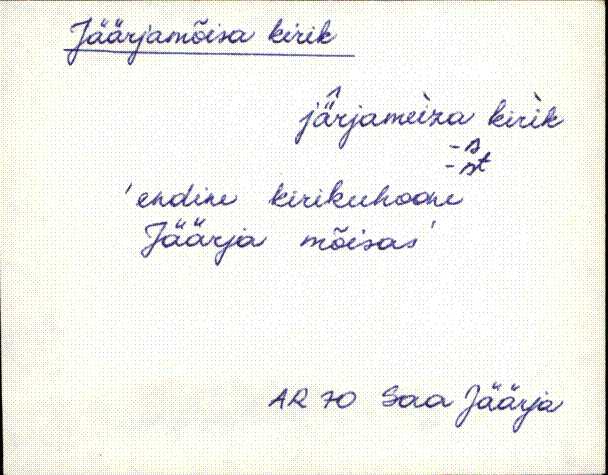 Jäärjamõisa kirik
jä̂rjamèiza kirìk
-s
-st
'endine kirikuhoone
Jäärja mõisas'
AR 70 Saa Jäärja